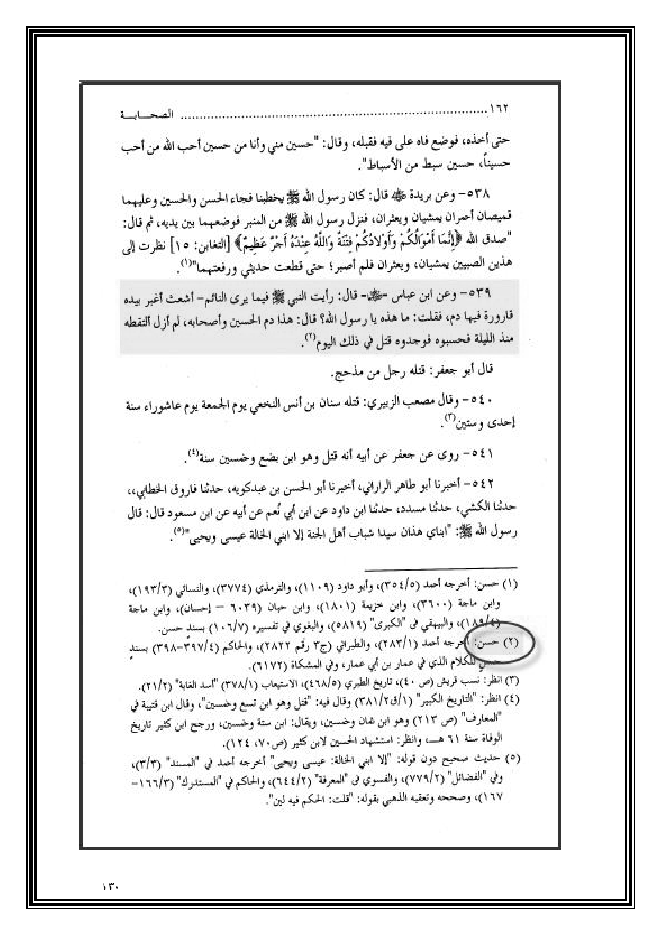 ١٦٢ ........................................................ الصحـــابـــة
حتى أخذه، فوضع فاه على فيه فقبله، وقال: "حسين مني وأنا من حسين أحب الله من أحب
حسيناً، حسين سبط من الأسباط".
٥٣٨- وعن بريدة ﷺ قال: كان رسول الله ﷺ يخطبنا فجاء الحسن والحسين وعليهما
قميصان أحمران يمشيان ويعثران، فنزل رسول الله ﷺ من المنبر فوضعهما بين يديه، ثم قال:
"صدق الله ﴿إِنَّمَا أَمْوَالُكُمْ وَأَوْلادُكُمْ فِتْنَةٌ وَاللَّهُ عِنْدَهُ أَجْرٌ عَظِيمٌ﴾ [التغابن: ١٥] نظرت إلى
هذين الصبيين يمشيان، ويعثران فلم أصبر؛ حتى قطعت حديثي ورفعتهما"(١).
٥٣٩- وعن ابن عباس -- قال: رأيت النبي ﷺ فيما يرى النائم- أشعث أغبر بيده
قارورة فيها دم، فقلت: ما هذه يا رسول الله؟ قال: هذا دم الحسين وأصحابه، لم أزل ألتقطه
منذ الليلة فحسبوه فوجدوه قتل في ذلك اليوم"(٢).
قال أبو جعفر: قتله رجل من مذحج.
٥٤٠- وقال مصعب الزبيري: قتله سنان بن أنس النخعي يوم الجمعة يوم عاشوراء سنة
إحدى وستين(٣).
٥٤١- روى عن جعفر عن أبيه أنه قتل وهو ابن بضع وخمسين سنة(٤).
٥٤٢- أخبرنا أبو طاهر الراراني، أخبرنا أبو الحسن بن عبدكويه، حدثنا فاروق الخطابي،
حدثنا الكشي، حدثنا مسدد، حدثنا ابن داود عن ابن أبي نُعم عن أبيه عن ابن مسعود قال: قال
رسول الله ﷺ: "ابناي هذان سيدا شباب أهل الجنة إلا ابني الخالة عيسى ويحيى"(٥).
(١) حسن: أخرجه أحمد (٣٥٤/٥)، وأبو داود (١١٠٩)، والترمذي (٣٧٧٤)، والنسائي (١٩٢/٣)،
وابن ماجة (٣٦٠٠)، وابن خزيمة (١٨٠١)، وابن حبان (٦٠٣٩ – إحسان)، وابن ماجة
(١٨٩/٤)، والبيهقي في "الكبرى" (٥٨١٩)، والبغوي في تفسيره (١٠٦/٧) بسند حسن.
(٢) حسن: أخرجه أحمد (٢٨٣/١)، والطبراني (ج٣ رقم ٢٨٢٢)، والحاكم (٣٩٧/٤-٣٩٨) بسند
حسن للكلام الذي في عمار بن أبي عمار، وفي المشكاة (٦١٧٢).
(٣) انظر: نسب قريش (ص ٤٠)، تاريخ الطبري (٤٦٨/٥)، الاستيعاب (٣٧٨/١) "أسد الغابة" (٢١/٢).
(٤) انظر: "التاريخ الكبير" (١/ق٣٨١/٢) وقال فيه: "قتل وهو ابن تسع وخمسين"، وقال ابن قتيبة في
"المعارف" (ص ٢١٣) وهو ابن ثمان وخمسين، ويقال: ابن ستة وخمسين، ورجح ابن كثير تاريخ
الوفاة سنة ٦١ هـ، وانظر: استشهاد الحسين لابن كثير (ص٧٠، ١٢٤).
(٥) حديث صحيح دون قوله: "إلا ابني الخالة: عيسى ويحيى" أخرجه أحمد في "المسند" (٣/٣)،
وفي "الفضائل" (٧٧٩/٢)، والفسوي في "المعرفة" (٦٤٤/٢)، والحاكم في "المستدرك" (١٦٦/٣-
١٦٧)، وصححه وتعقبه الذهبي بقوله: "قلت: الحكم فيه لين".
١٣٠